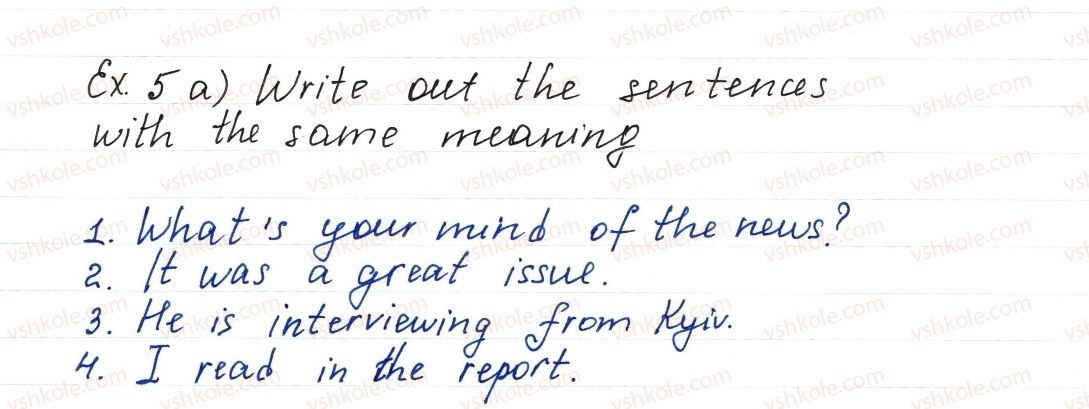 Ex. 5 a) Write out the sentences
with the same meaning
1. What's your mind of the news?
2. It was a great issue.
3. He is interviewing from Kyiv.
4. I read in the report.